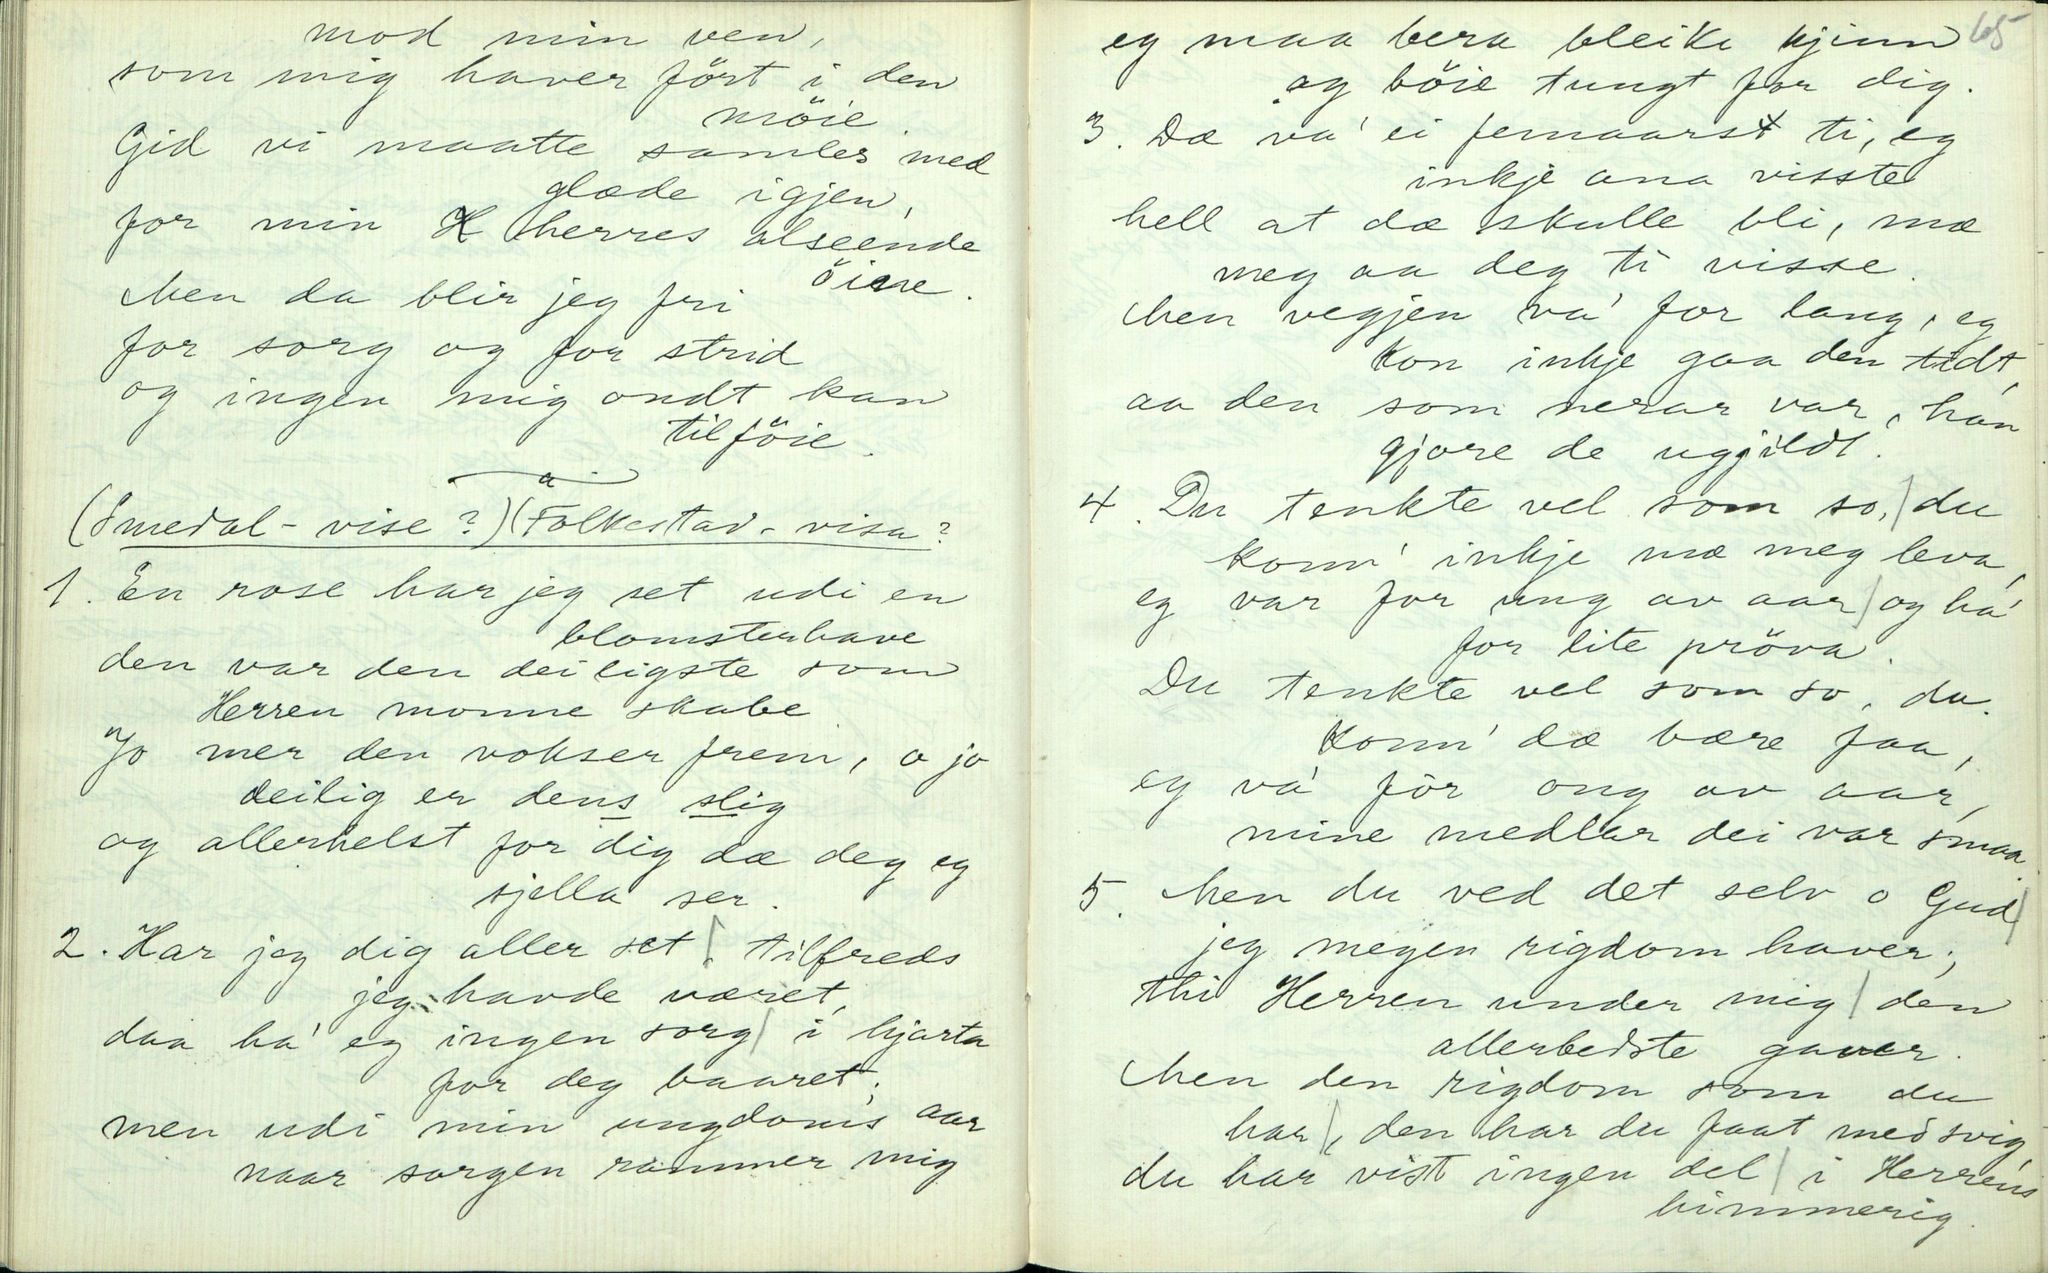 mod min ven,
som mig haver ført i den
möie.
Gid vi maatte samles med
glæde igjen,
for min herres alseende
öine.
Men da blir jeg fri
for sorg og for strid
og ingen mig ondt kan
tilföie.
(Smedal-vise?) (Folkestad-visa?
1. En rose har jeg set udi en
blomsterhave
den var den deiligste som
Herren monne skabe.
Jo mer den vokser frem, o jo
deilig er dens slig
og allerhelst for dig dæ deg eg
sjella ser.
2. Har jeg dig aller set, tilfreds
jeg havde været,
daa ha' eg ingen sorg i hjarta
for deg baaret;
men udi min ungdoms aar
naar sorgen rammer mig
65
eg maa bera bleike kjinn
og böie tungt for dig.
3. Dæ va' ei femaars ti, eg
inkje ana visste
hell at dæ skulle bli, mæ
meg aa deg ti visse.
Men vegjen va' for lang, eg
kon inkje gaa den tidt,
aa den som nerar var, han
gjore de ugjildt.
4. Du tenkte vel som so, du
konn' inkje mæ meg leva,
eg var for ung av aar og ha'
for lite pröva.
Du tenkte vel som so, du
konn' dæ bære faa,
eg va' för ong av aar,
mine medlar dei var smaa.
5. Men du ved det selv o Gud
jeg megen rigdom haver;
thi Herren under mig den
allerbedste gaver.
Men den rigdom som du
har, den har du faat med svig,
du har vist ingen del i Herrens
himmerig.